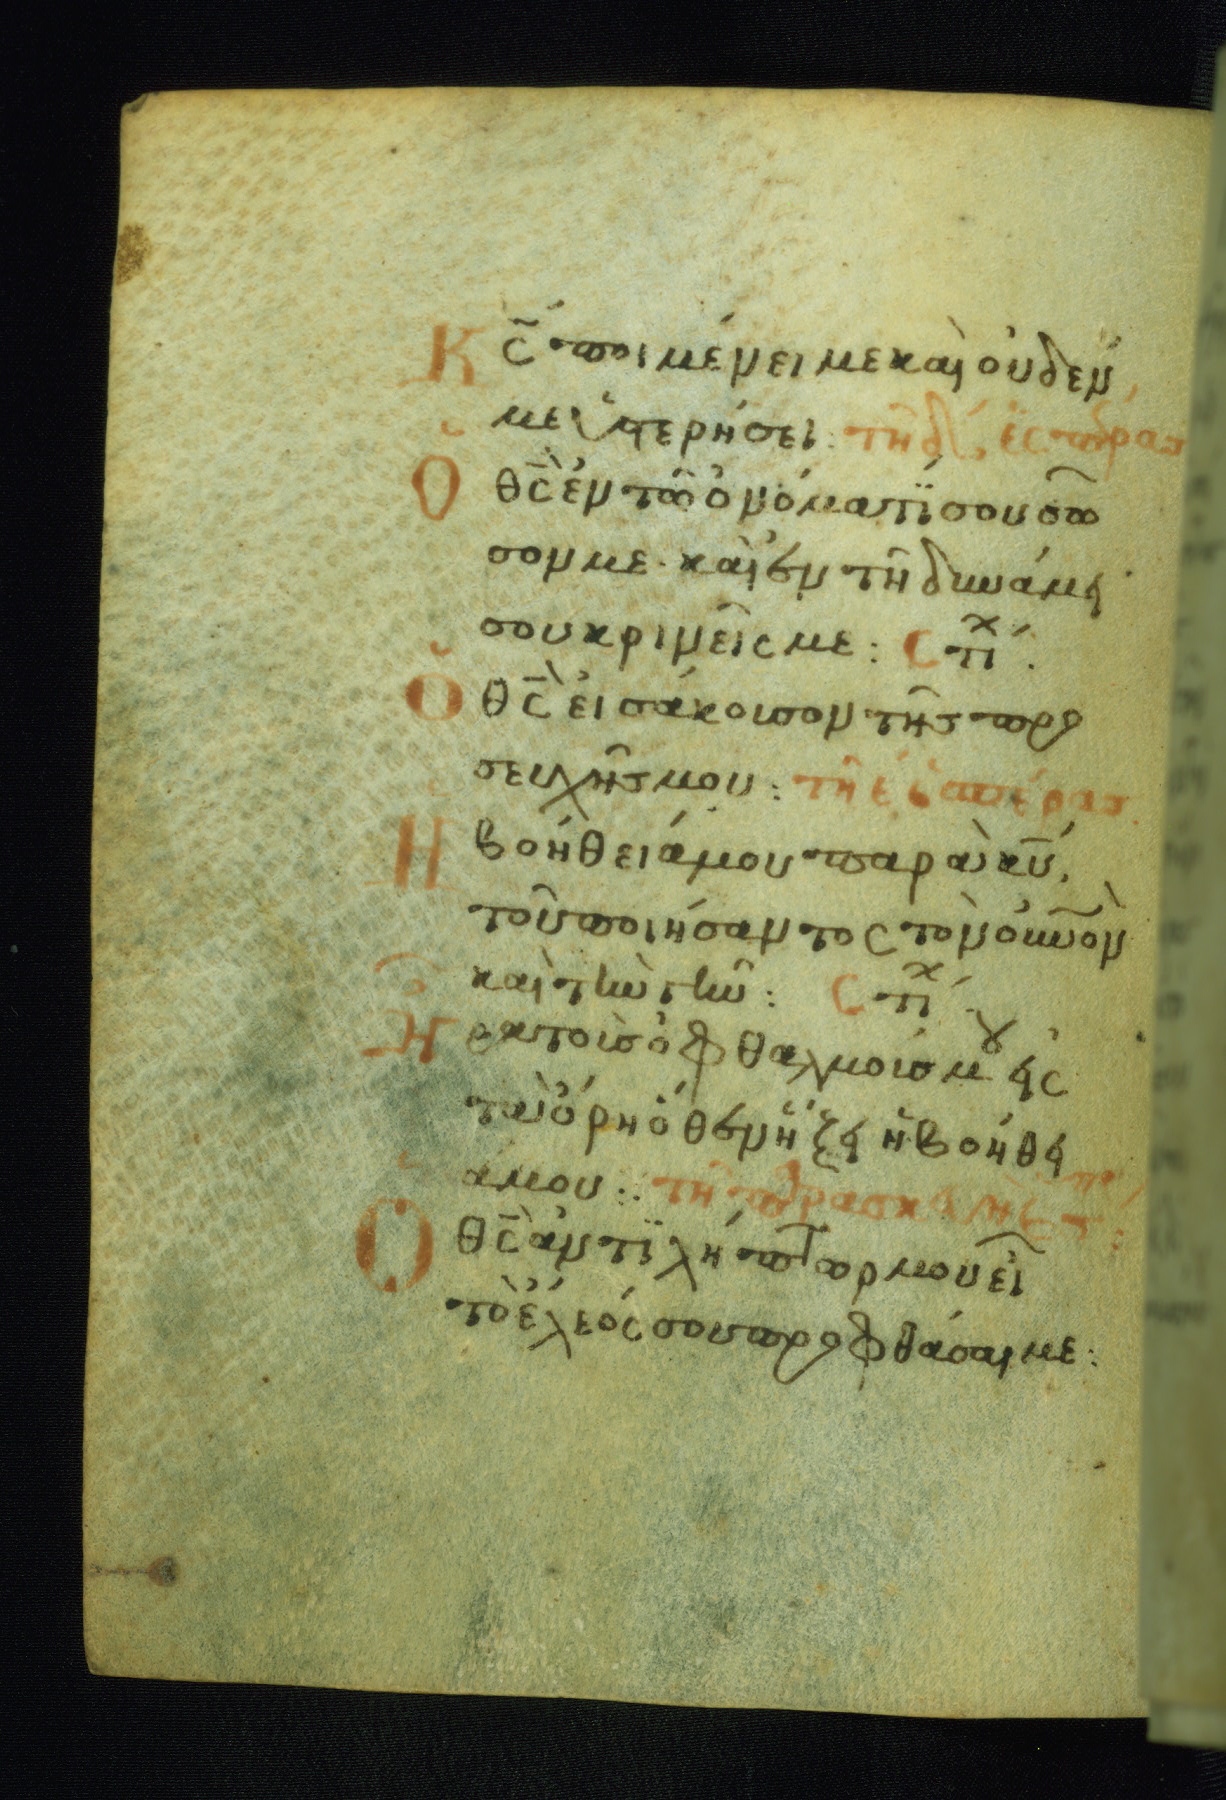 Κς ποιμένει με καὶ οὐδέν
με ὑστερήσει: τῆ δ ἑσπέρας
Ὁ θς ἐν τῶ ὀνόματί σου σῶ
σον με· καὶ ἐν τῆ δυνάμει
σου κρινεῖς με: Στίχ.
Ὁ θς εἰσάκουσον τῆς προ
σευχῆς μου: τῆ ε ἑσπέρας
Ἡ βοήθειά μου παρὰ κυ.
τοῦ ποιήσαντος τὸν οὐνον
καὶ τὴν γῆν: Στίχ.
Ἦρα τοὺς ὀφθαλμούς μου εἰς
τὰ ὄρη ὅθεν ἥξει ἡ βοήθει
ά μου: τῆ παρασκευῆ
Ὁ θς ἀντιλήπτωρ μου εἶ
τὸ ἔλεός σου προφθάσαι με: